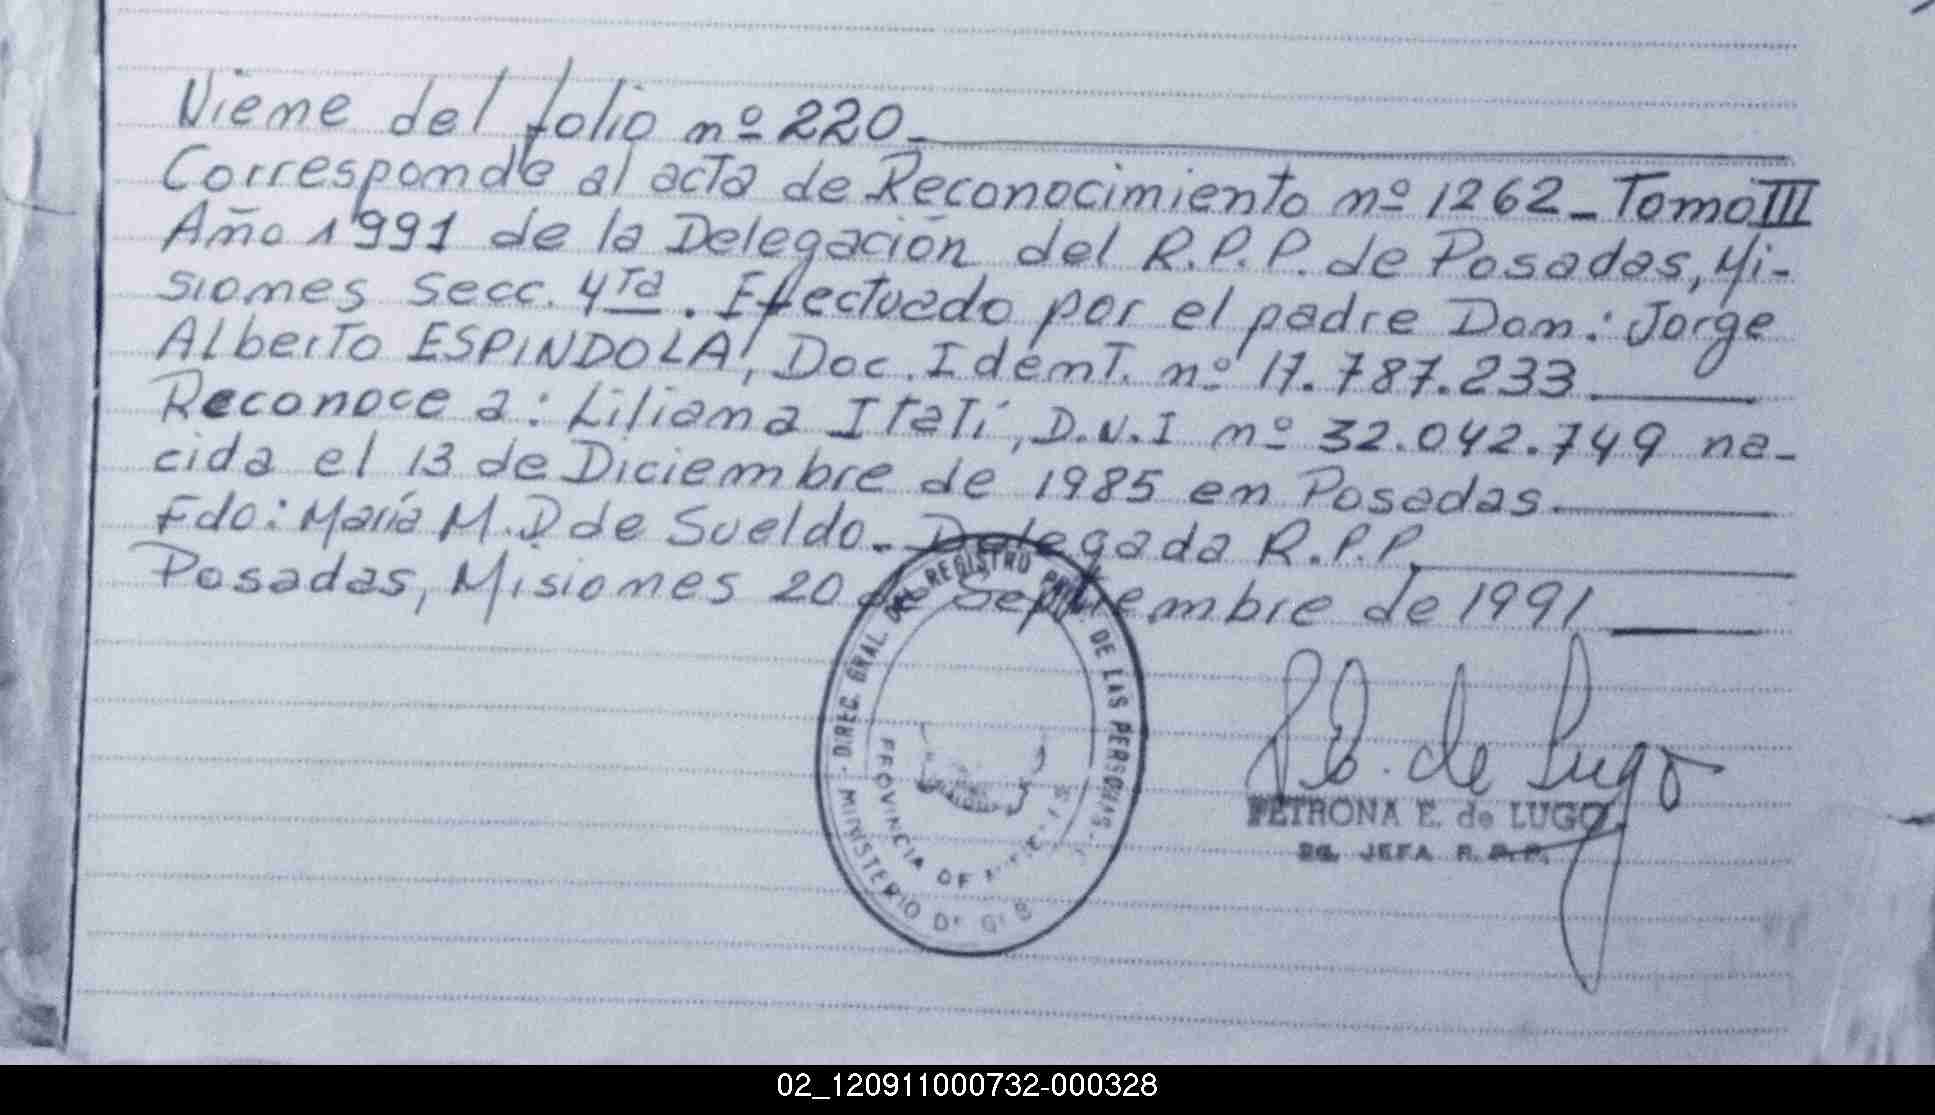 Viene del folio nº 220.
Corresponde al acta de Reconocimiento nº 1262 - Tomo III
Año 1991 de la Delegación del R.P.P. de Posadas, Mi-
siones Secc. 4ta. Efectuado por el padre Don: Jorge
Alberto ESPINDOLA, Doc. Ident. nº 17.787.233
Reconoce a: Liliana Itatí, D.N.I nº 32.042.749 na-
cida el 13 de Diciembre de 1985 en Posadas.
Fdo: María M. D de Sueldo. Delegada R.P.P.
Posadas, Misiones 20 de Septiembre de 1991
DIREC. GRAL. DEL REGISTRO PROV. DE LAS PERSONAS
MINISTERIO DE
PROVINCIA DE
P.E. de Lugo
PETRONA E. de LUGO
JEFA R.P.P.
02_120911000732-000328